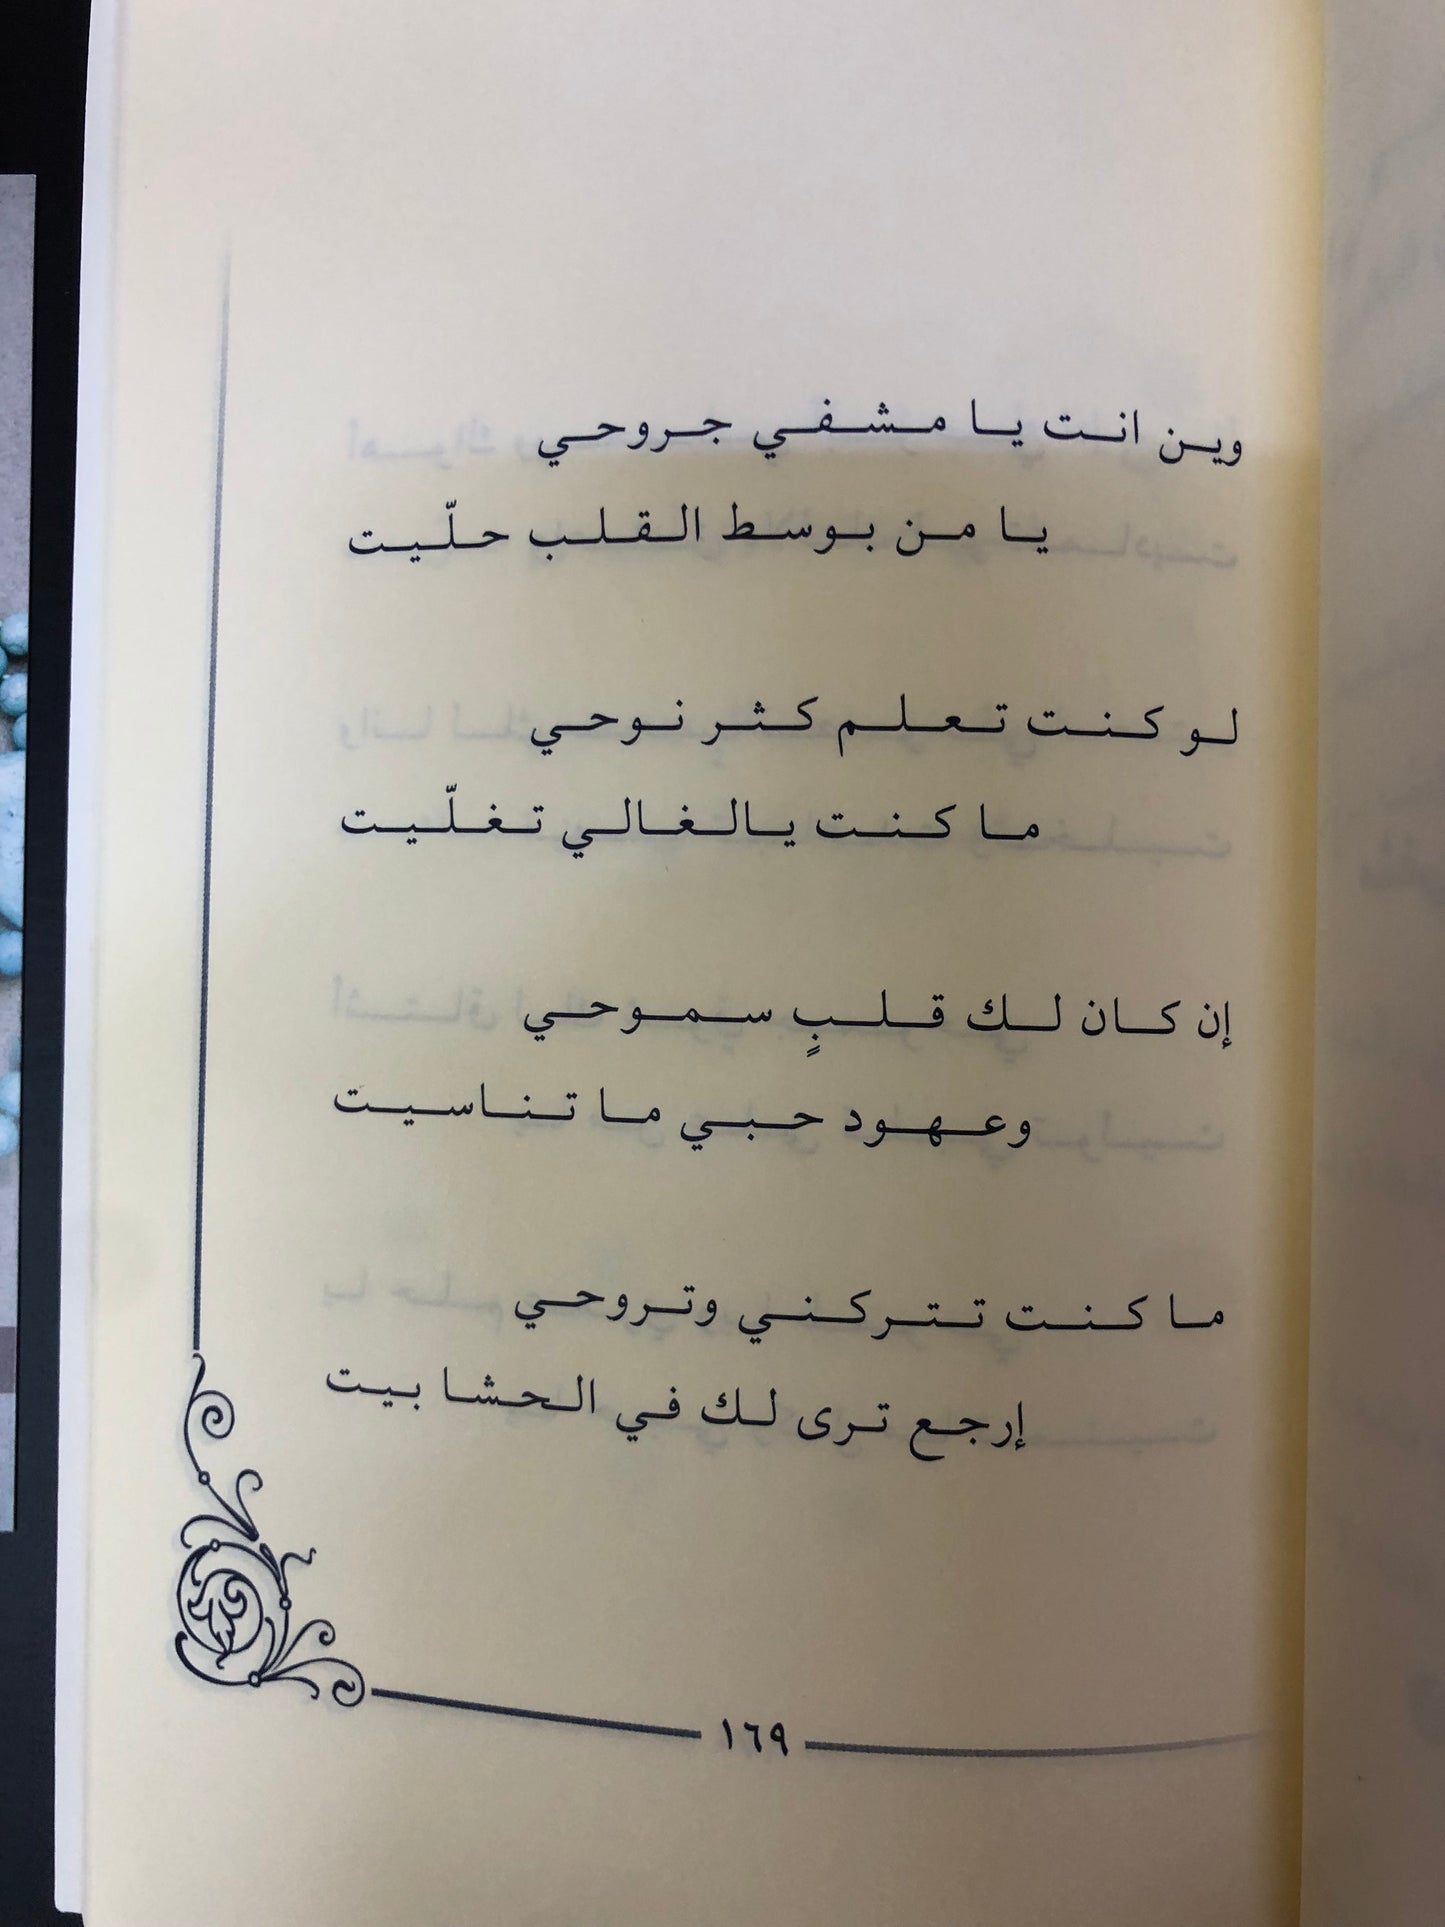 وين انت يا مشفي جروحي
يا من بوسط القلب حلّيت
لو كنت تعلم كثر نوحي
ما كنت يالغالي تغلّيت
إن كان لك قلبٍ سموحي
وعهود حبي ما تناسيت
ما كنت تتركني وتروحي
إرجع ترى لك في الحشا بيت
١٦٩